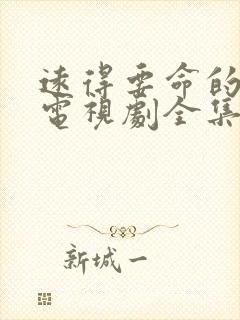 遠得要命的
電視劇全集
新城一